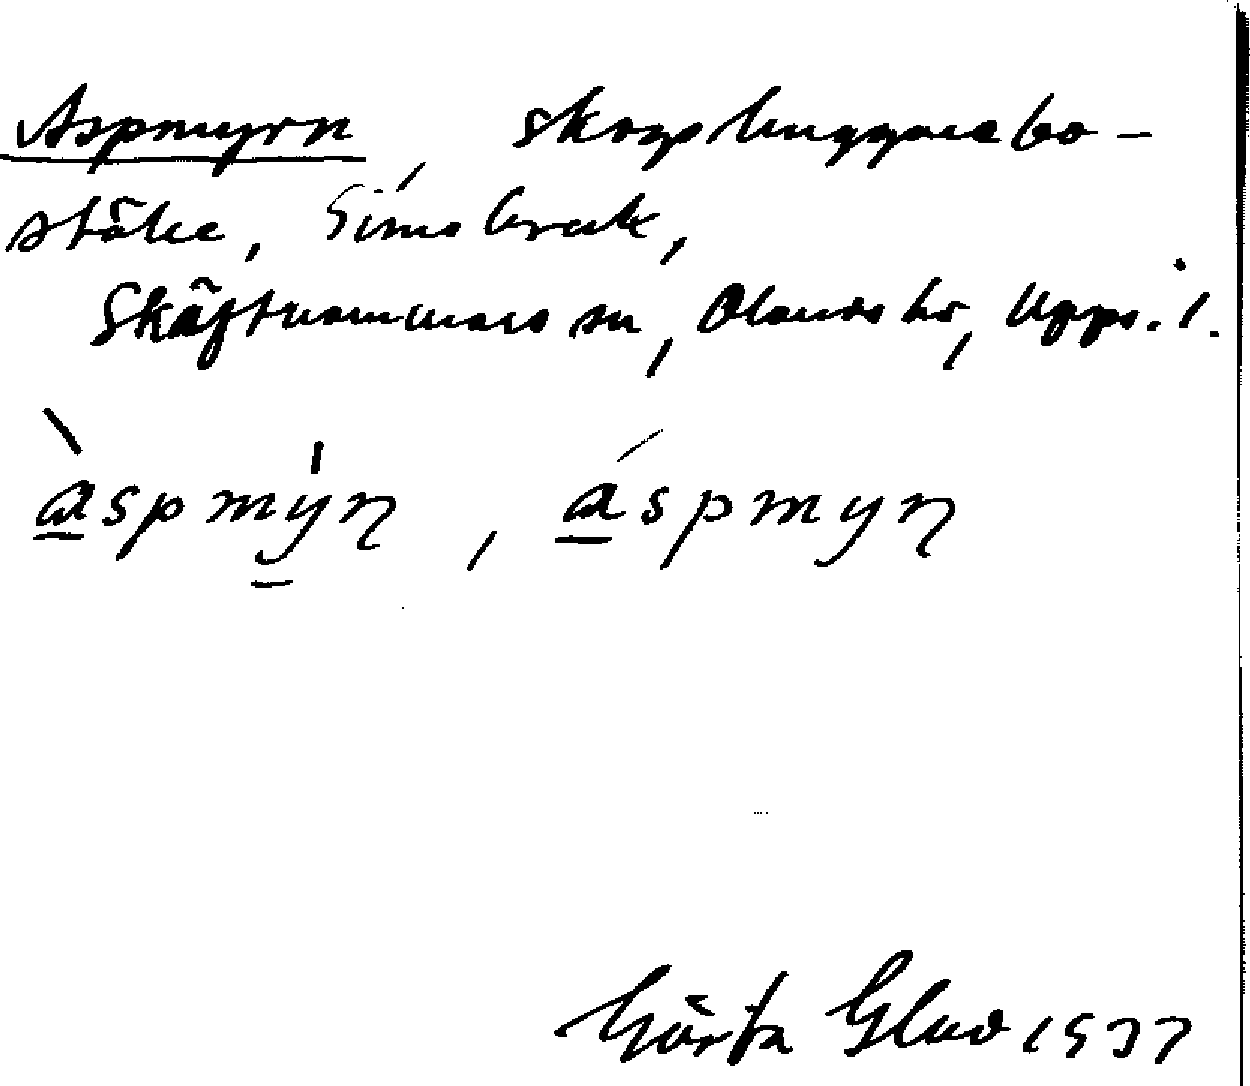 Aspmyrn, skogshuggarebo-
ställe, Gimobruk,
Skäfthammars sn, Olands hd, Upps. l.
àspmýɳ, áspmyɳ
Gösta 1937